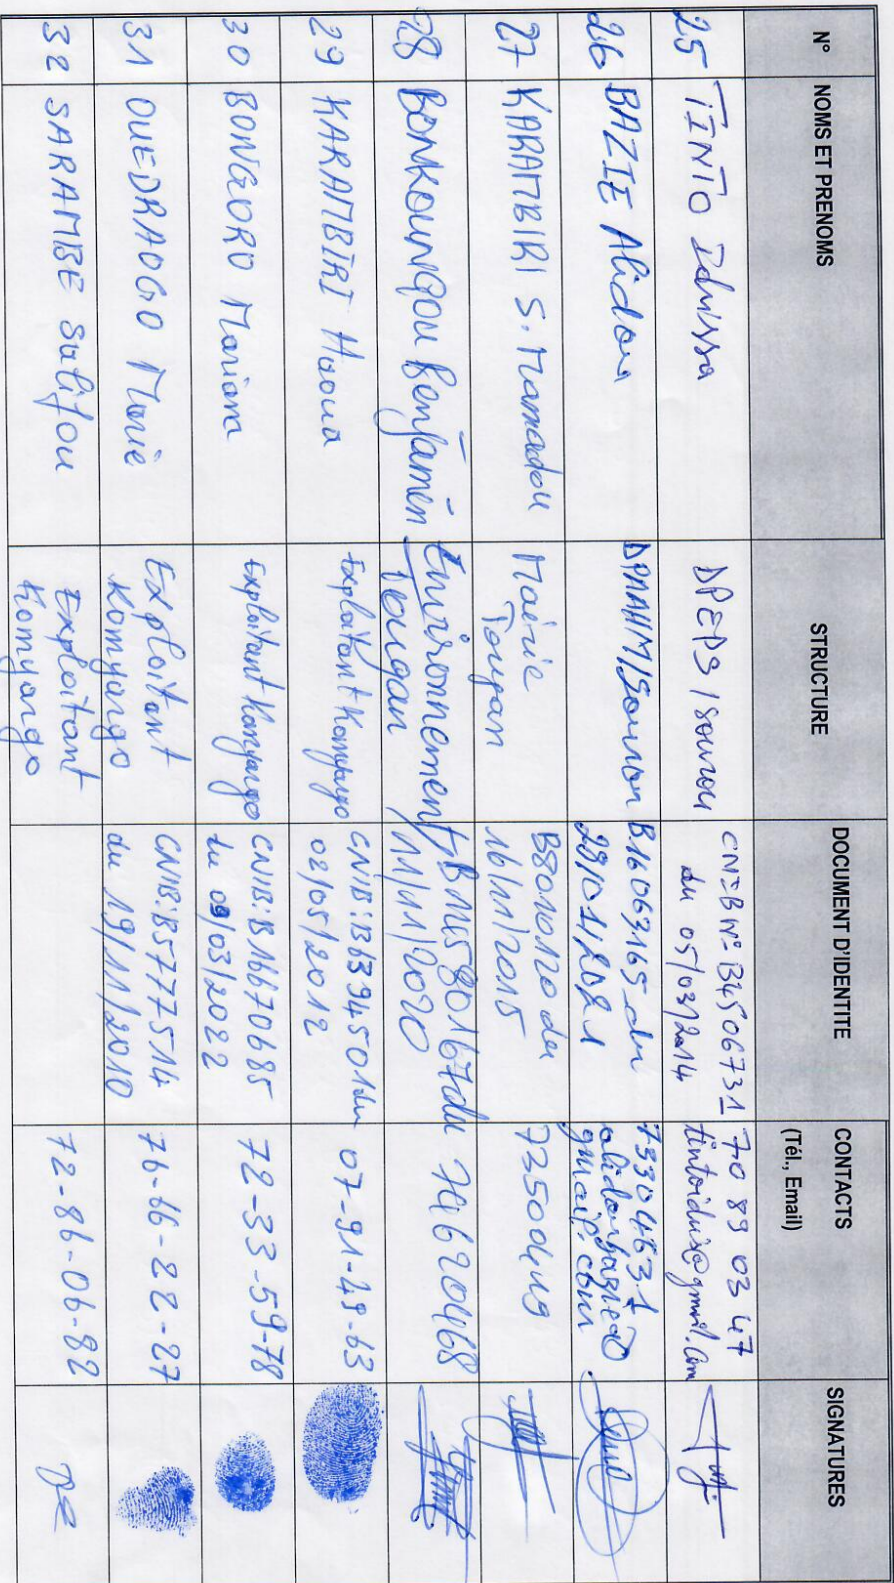 N° NOMS ET PRENOMS STRUCTURE DOCUMENT D'IDENTITE CONTACTS (Tél., Email) SIGNATURES
25 TINTO Idrissa DPEPS/Sourou CNIB N° B4506731 du 05/03/2014 70 89 03 47 tintoidris@gmail.com
26 BAZIE Alidou DPAAHM/Sourou B16063165 du 29/01/2021 73304631 gmail.com
27 KARAMBIRI S. Mamadou Mairie Tougan B8010120 du 16/11/2015 73500449
28 BONKOUNGOU Benjamin Environnement Tougan B14580167 du 11/11/2020 74620468
29 KARAMBIRI Haoua Exploitant Komyargo CNIB: B6394501 du 02/05/2012 07-91-49-63
30 BONGORO Mariam Exploitant Komyargo CNIB: B16670685 du 09/03/2022 72-33-59-78
31 OUEDRAOGO Marie Exploitant Komyargo CNIB: B5777514 du 19/11/2010 76-66-22-27
32 SARAMBE Salifou Exploitant Komyargo 72-86-06-82